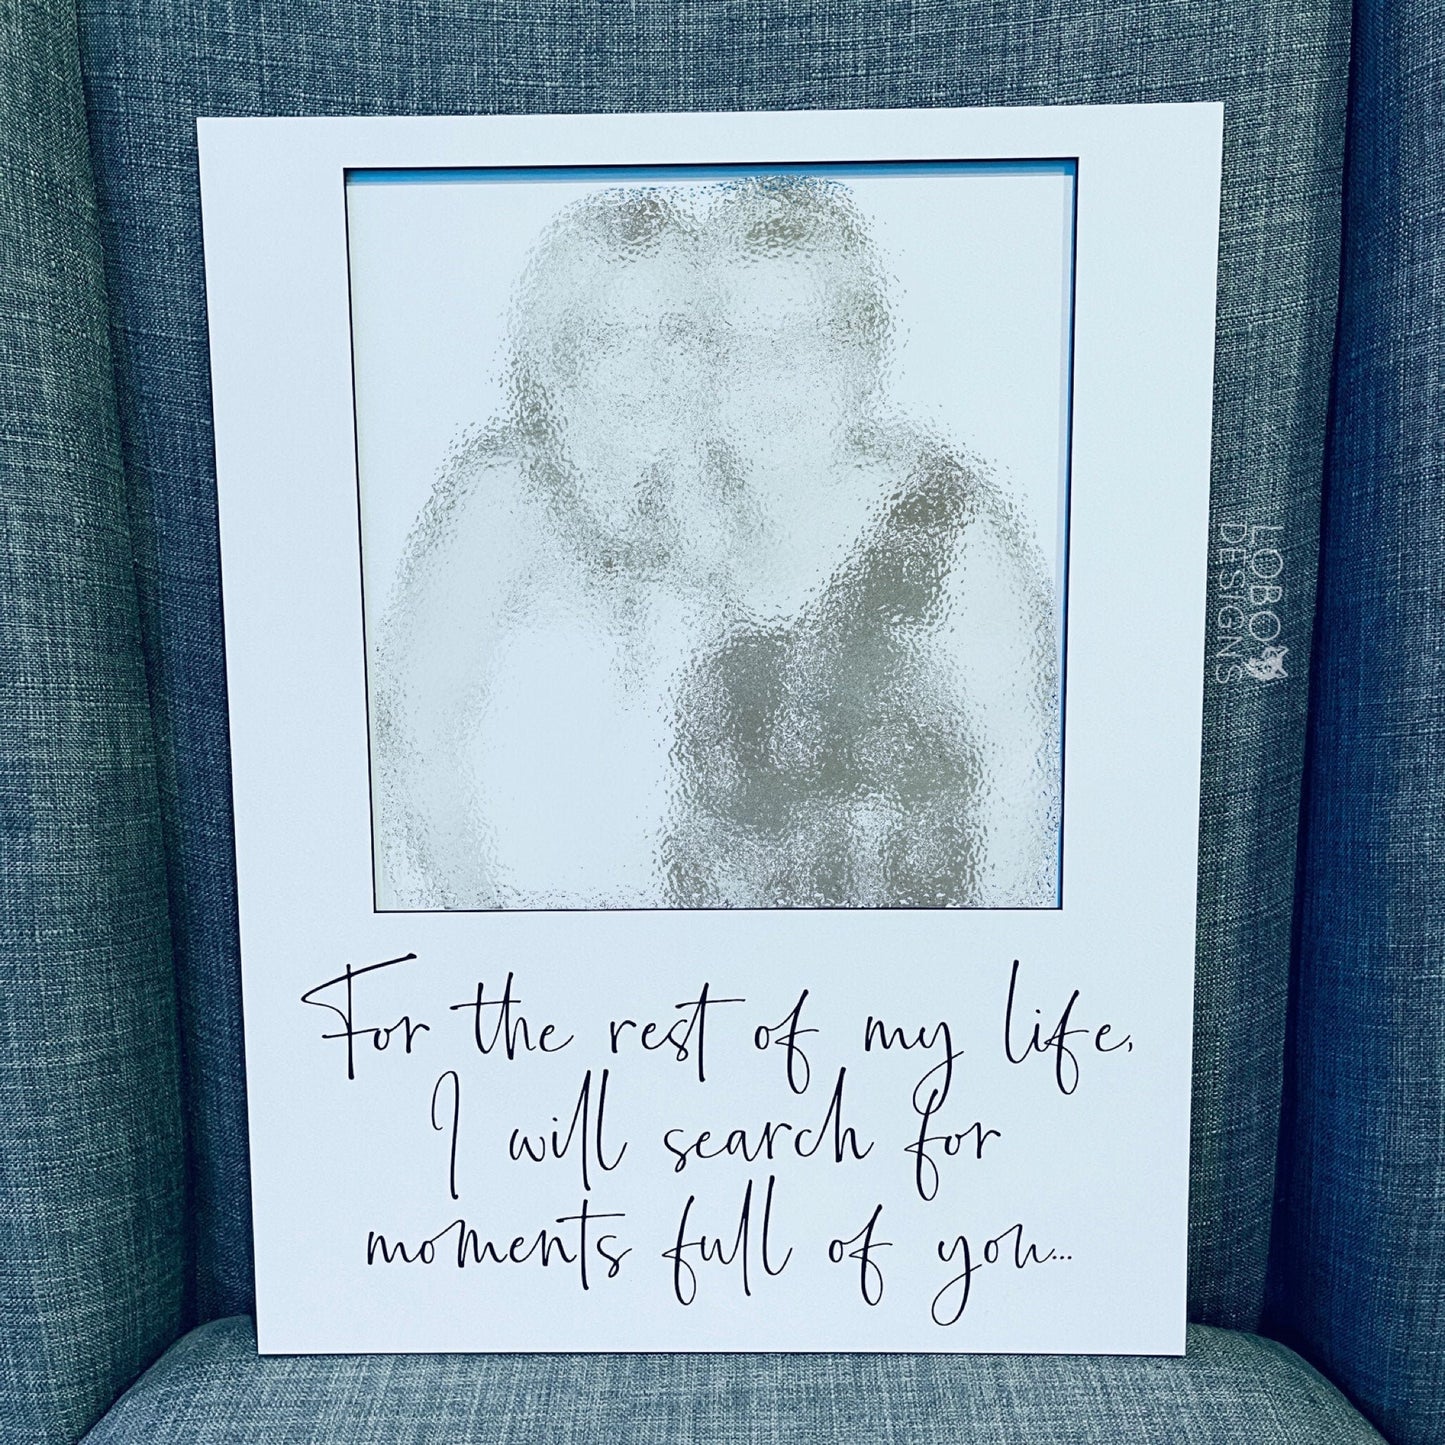 For the rest of my life,
I will search for
moments full of you...
LOBO
DESIGNS